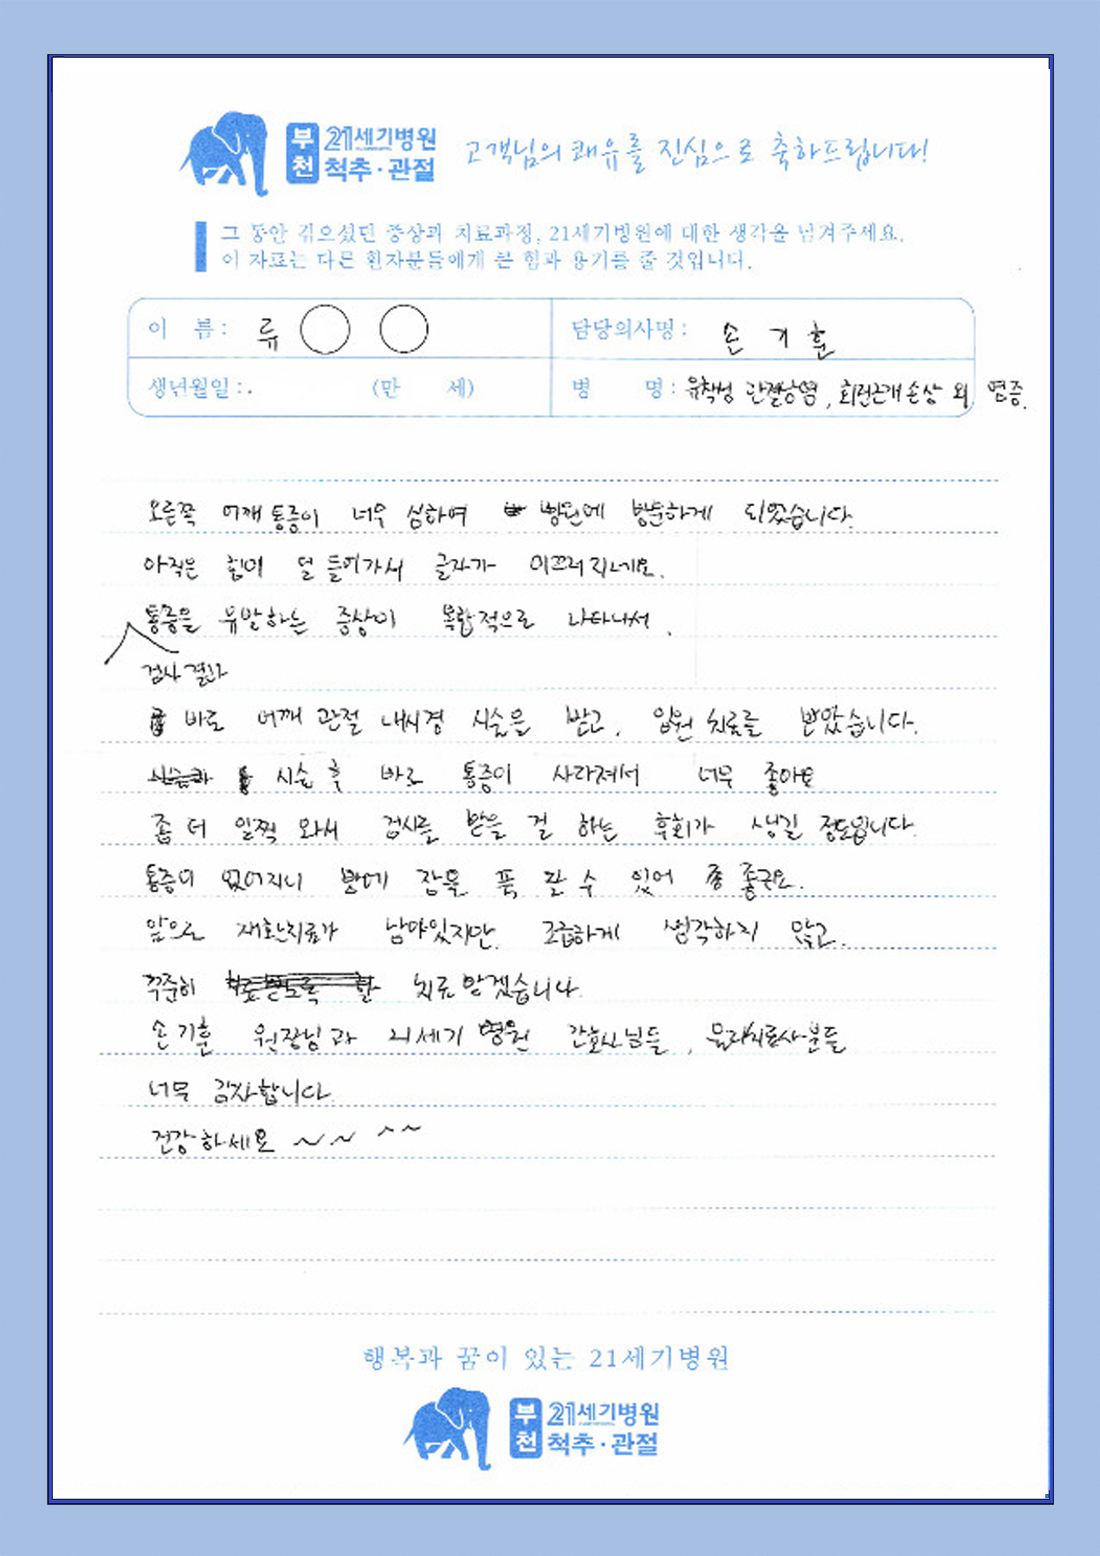 부천 21세기병원 척추·관절
고객님의 쾌유를 진심으로 축하드립니다!
그 동안 겪으셨던 증상과 치료과정, 21세기병원에 대한 생각을 남겨주세요.
이 자료는 다른 환자분들에게 큰 힘과 용기를 줄 것입니다.
이 름 : 류 ○ ○ 담당의사명 : 손 기 훈
생년월일 : . (만 세) 병 명 : 유착성 관절낭염, 회전근개손상 외 염증.
오른쪽 어깨 통증이 너무 심하여 병원에 방문하게 되었습니다.
아직은 힘이 덜 들어가서 글자가 미끄러지네요.
통증을 유발하는 증상이 복합적으로 나타나서.
검사결과
바로 어깨 관절 내시경 시술을 받고, 입원 치료를 받았습니다.
시술 후 바로 통증이 사라져서 너무 좋아요
좀 더 일찍 와서 검사를 받을 걸 하는 후회가 생길 정도입니다.
통증이 없어지니 밤에 잠을 푹 잘 수 있어 좋군요.
앞으로 재활치료가 남아있지만, 조급하게 생각하지 않고.
꾸준히 치료 받겠습니다.
손기훈 원장님과 21세기 병원 간호사님들, 물리치료사분들
너무 감사합니다.
건강하세요 ~~ ^^
행복과 꿈이 있는 21세기병원
부천 21세기병원 척추·관절